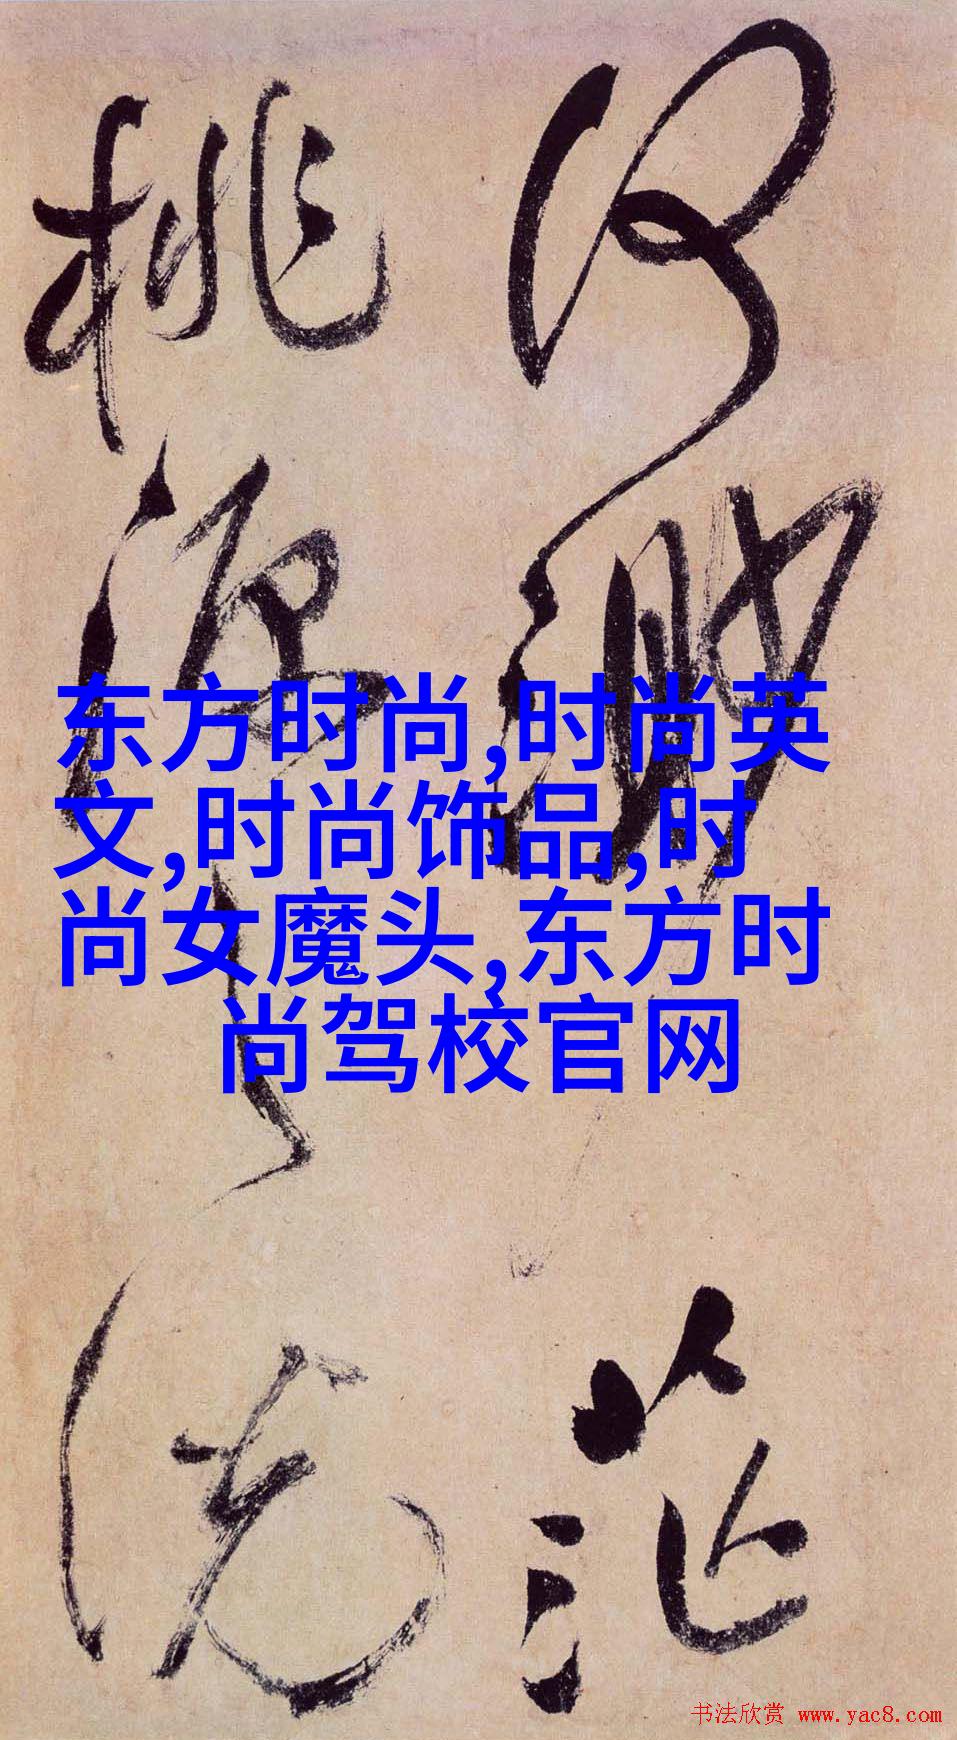 何渺茫
桃源之説
东方时尚,时尚英
文,时尚饰品,时
尚女魔头,东方时
尚驾校官网
书法欣赏 www.yac8.com